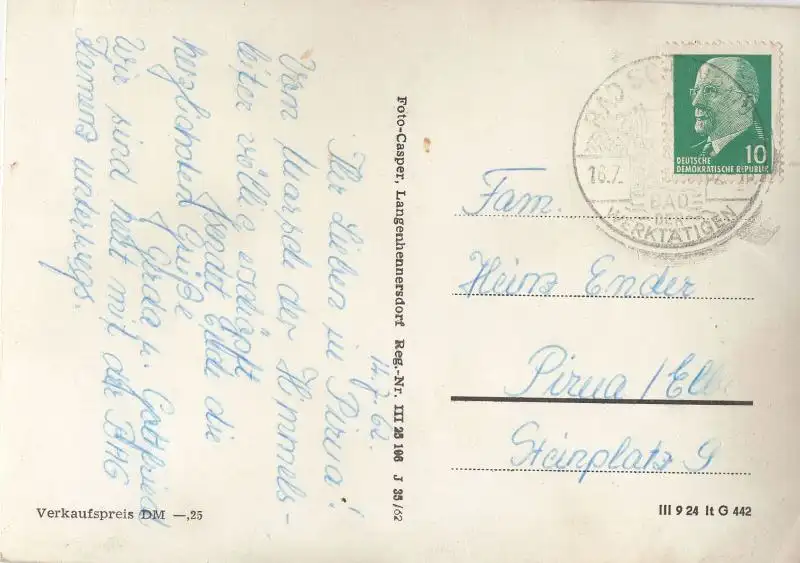 14.7.62.
Ihr Lieben in Pirna!
Vom Marsch der Himmels-
leiter völlig erschöpft
sendet Euch die
herzlichsten Grüße
Gerda u. Gottfried
Wir sind heut mit der BHG
Kamenz unterwegs.
Foto-Casper, Langenhennersdorf Reg.-Nr. III 25 106 J 35/62
Verkaufspreis DM —,25
BAD
16.7.
BAD
DER
WERKTÄTIGEN
10
DEUTSCHE
DEMOKRATISCHE REPUBLIK
Fam.
Heinz Ender
Pirna/Elbe
Steinplatz 9
III 9 24 It G 442